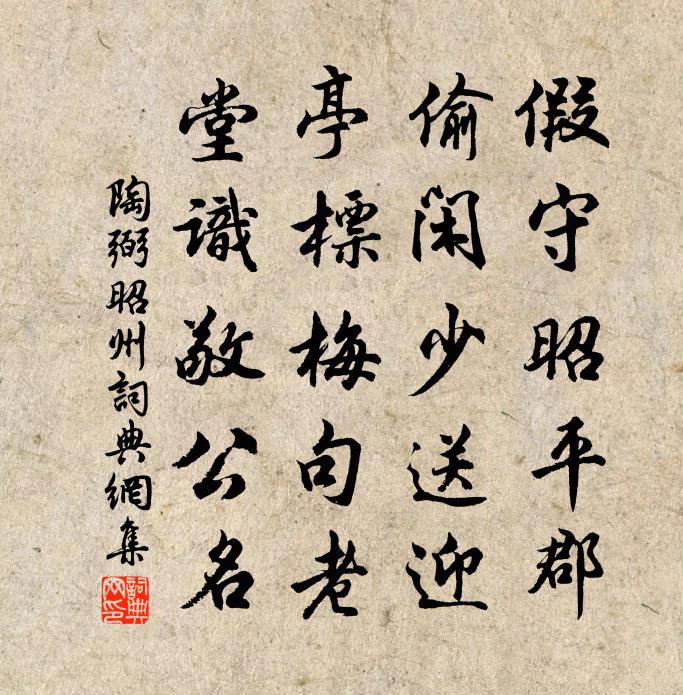 假守昭平郡
偷閑少送迎
亭標梅句老
堂識敬公名
陶弼昭州詞典網集
詞典網印